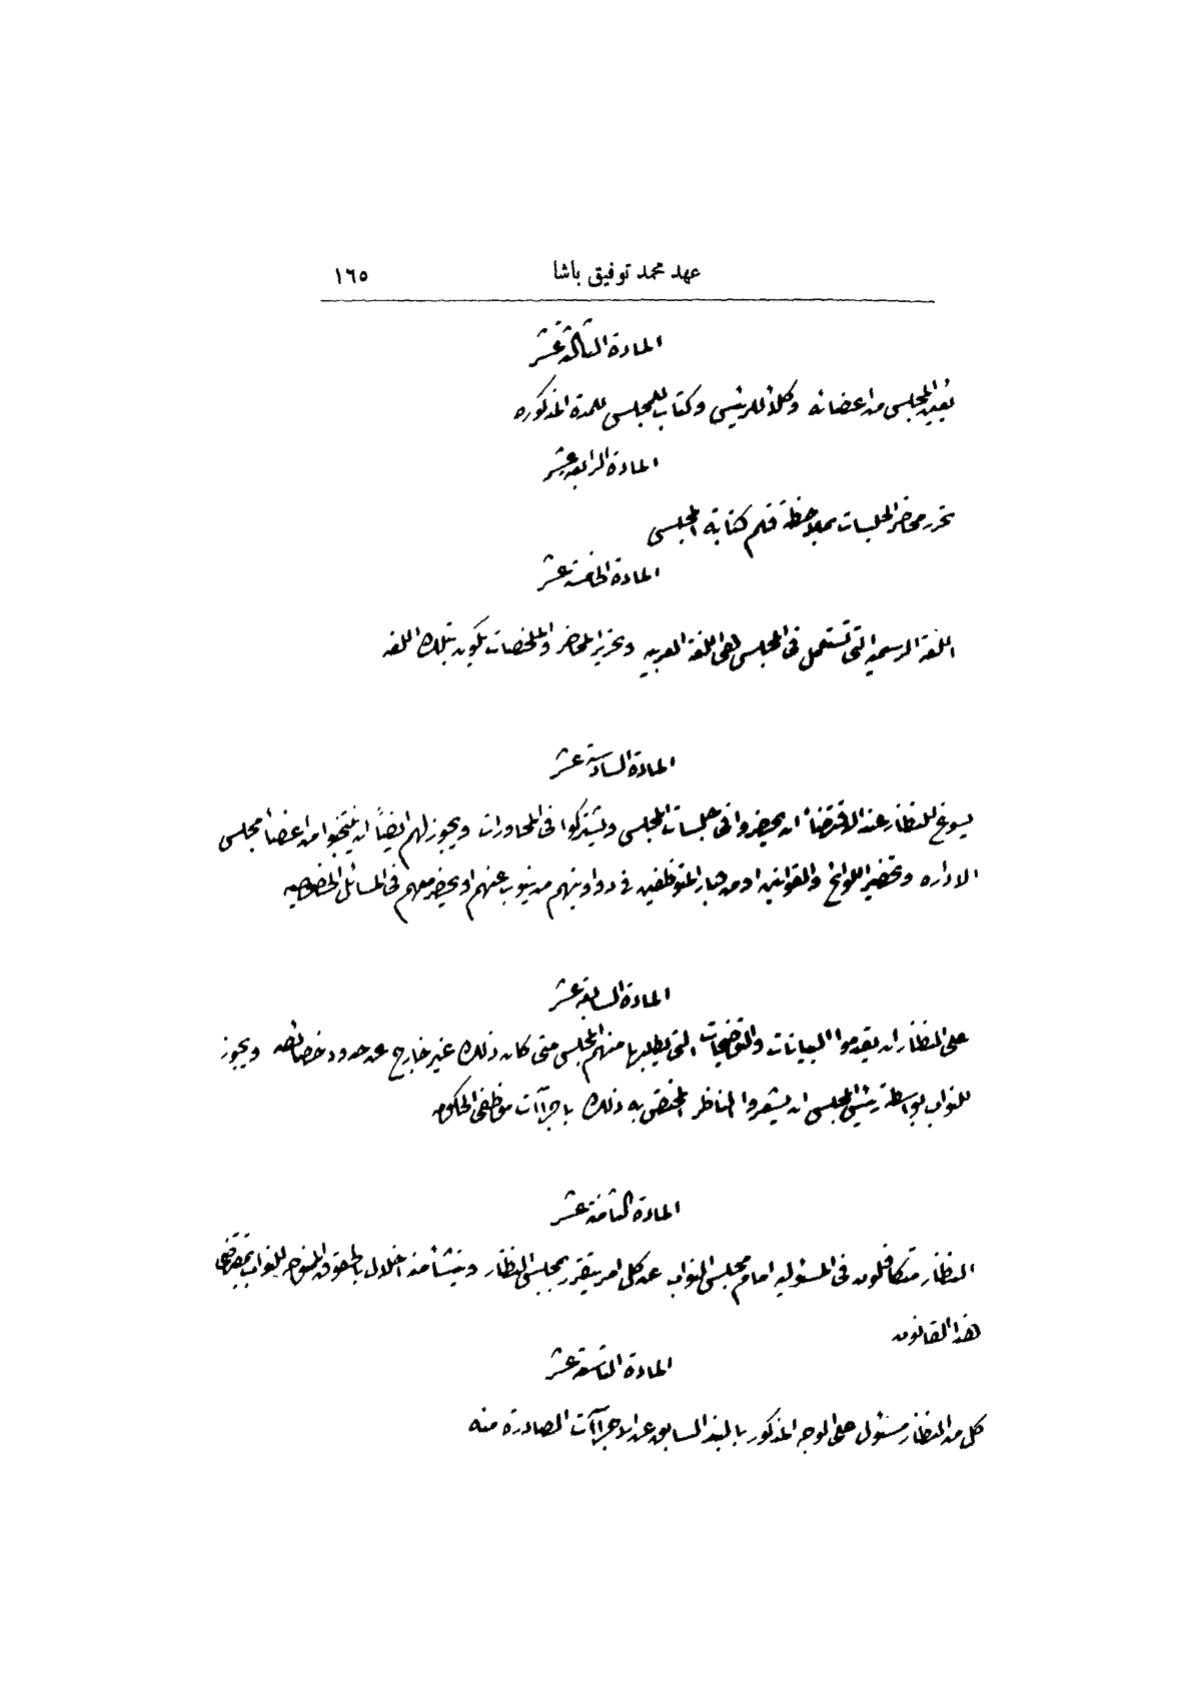 عهد محمد توفيق باشا ١٦٥
المادة الثالثة عشر
يعين المجلس من اعضائه وكلاً للرئيس وكتاب للمجلس للمدة المذكوره
المادة الرابعة عشر
تحرر محاضر الجلسات بملاحظة قلم كتابة المجلس
المادة الخامسة عشر
اللغة الرسمية التى تستعمل فى المجلس هى اللغة العربيه وتحرير المحاضر والملخصات يكون بتلك اللغه
المادة السادسة عشر
يسوغ للنظار عند الاقتضأ ان يحضروا فى جلسات المجلس ويشتركوا فى المحاورات ويجوز لهم ايضاً ان ينتخبوا من اعضأ مجلس
الاداره وتحضير اللوائح والقوانين او من كبار المتوظفين فى دواوينهم من ينوب عنهم او يحضر معهم فى المسائل الخصوصيه
المادة السابعة عشر
على النظار ان يقدموا البيانات والتوضيحات التى يطلبها منهم المجلس متى كان ذلك غير خارج عن حدود خصائصه ويجوز
للنواب بواسطة رئيس المجلس ان يشعروا الناظر المختص به ذلك باجراآت موظفى الحكومه
المادة الثامنة عشر
النظار متكافلون فى المسئوليه امام مجلس النواب عن كل امر يتقرر بمجلس النظار وينشأ منه اخلال بالحقوق الممنوحه للنواب بمقتضى
هذا القانون
المادة التاسعة عشر
كل من النظار مسئول على الوجه المذكور بالبند السابق عن الاجراآت الصادرة منه